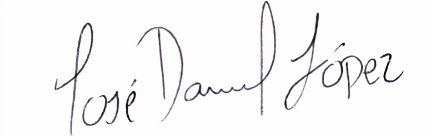 José Daniel López